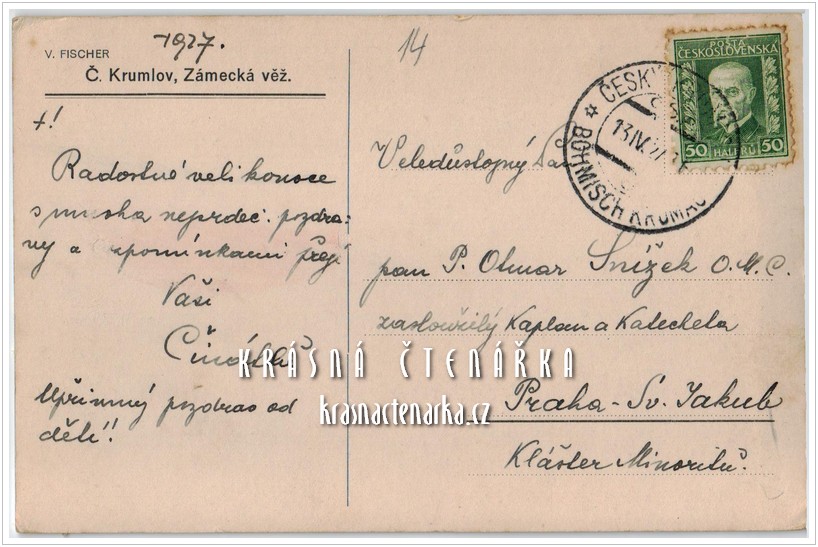 1927.
14
V. FISCHER
Č. Krumlov, Zámecká věž.
+!
Radostné velikonoce
s mnoha nejsrdeč. pozdra-
vy a vzpomínkami přejí
Vaši
Upřímný pozdrav od
dětí!!
POŠTA
ČESKOSLOVENSKA
50 HALÉŘŮ 50
ČESKÝ
13.IV.27
BÖHMISCH KRUMAU
Veledůstojný Pan
pan P. Otmar Snížek O.M.C.
zasloužilý Kaplan a Katecheta
Praha - Sv. Jakub
Klášter Minoritů.
KRÁSNÁ ČTENÁŘKA
krasnactenarka.cz